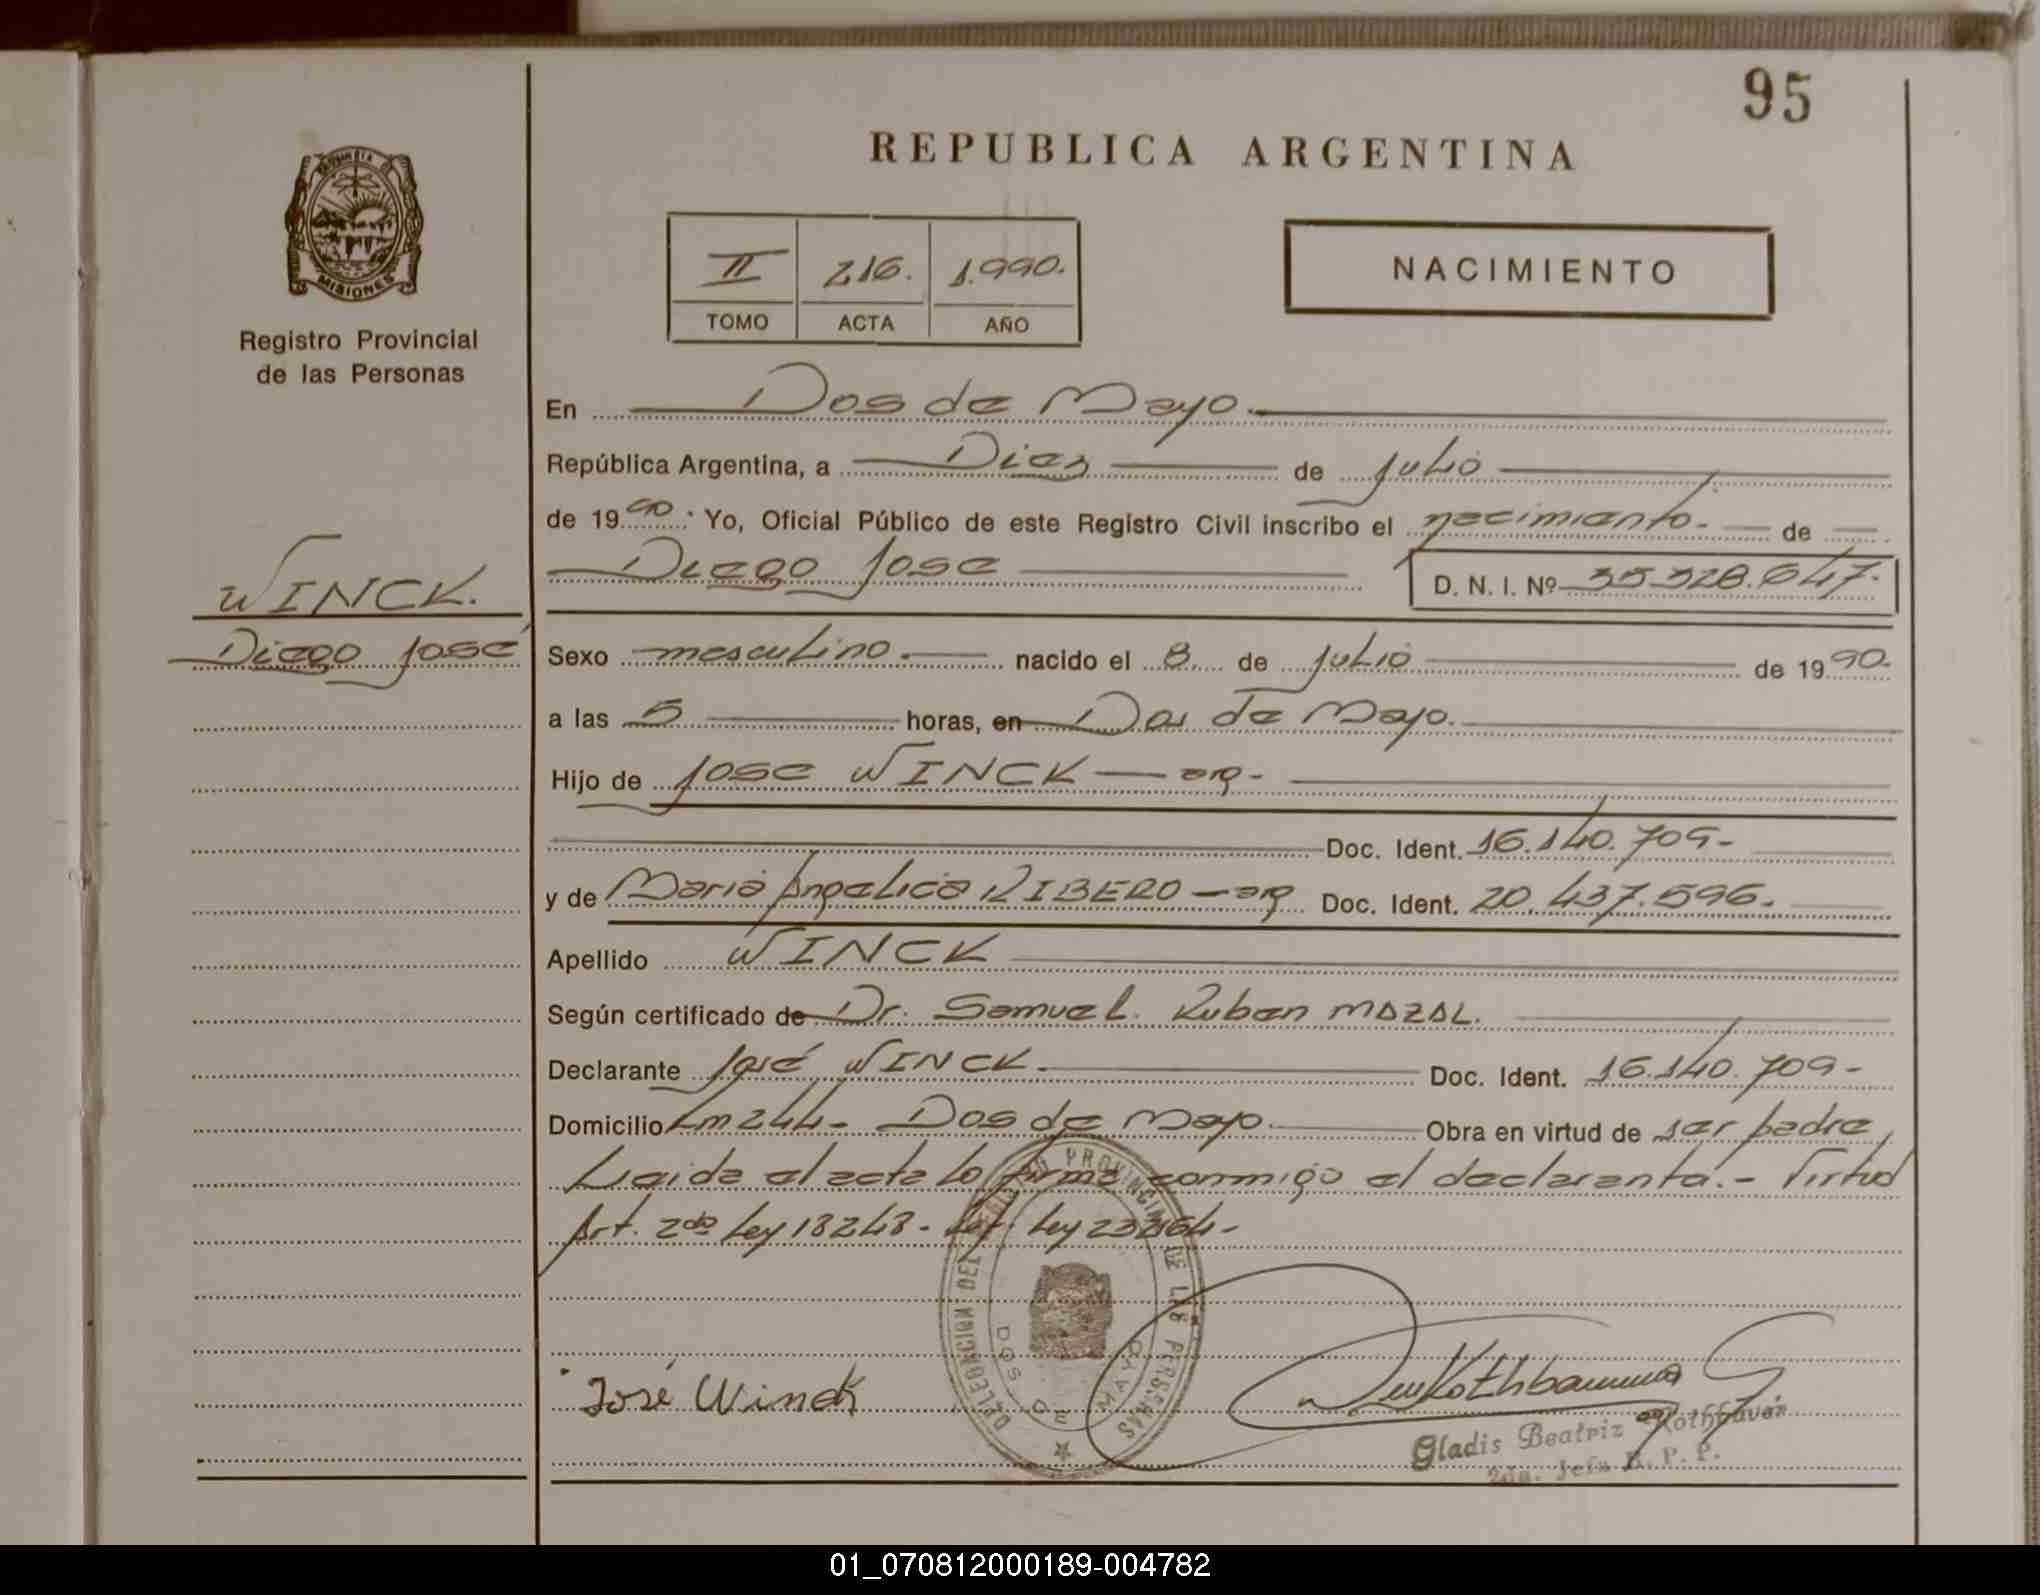 95
REPUBLICA ARGENTINA
PROVINCIA DE
MISIONES
Registro Provincial
de las Personas
II 216. 1.990.
TOMO ACTA AÑO
NACIMIENTO
En Dos de Mayo.
República Argentina, a Diez de Julio
de 1990. Yo, Oficial Público de este Registro Civil inscribo el nacimiento. de
Diego Jose D. N. I. Nº 35.328.647.
WINCK.
Diego José
Sexo masculino. nacido el 8 de Julio de 1990.
a las 5 horas, en Dos de Mayo.
Hijo de Jose WINCK — arg-
Doc. Ident. 16.140.709-
y de Maria Angelica RIBERO — arg Doc. Ident. 20.437.596.
Apellido WINCK
Según certificado de Dr. Samuel Ruben MAZAL.
Declarante José WINCK. Doc. Ident. 16.140.709-
Domicilio Km 244- Dos de Mayo. Obra en virtud de ser padre
Leida el acta lo firma conmigo el declarante.- Virtud
Art. 2do Ley 18248- Ley 23264-
DELEGACION DEL REGISTRO PROVINCIAL DE LAS PERSONAS
DOS DE MAYO
José Winck
Gladis Beatriz Rothbauer
2da. Jefa R. P. P.
01_070812000189-004782